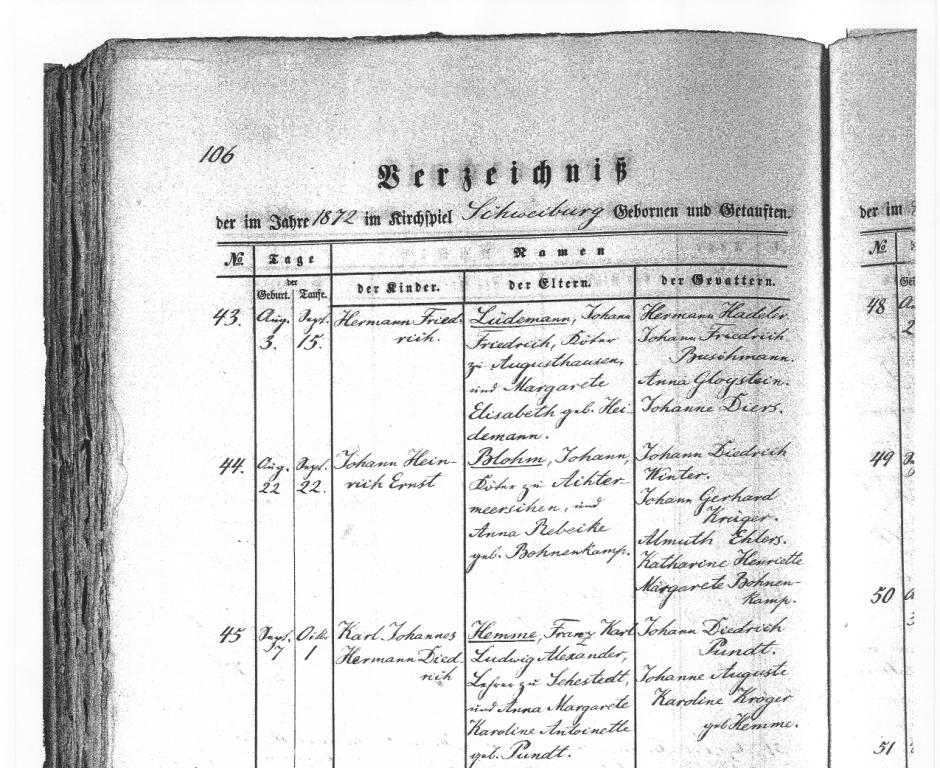 106
Verzeichniß
der im Jahre 1872 im Kirchspiel Schweiburg Gebornen und Getauften.
№ Tage Namen
der Geburt. Taufe. der Kinder. der Eltern. der Gevattern.
43. Aug. Sept. Hermann Fried- Lüdemann, Johann Hermann Hadeler
3. 15. rich. Friedrich, Köter Johann Friedrich
zu Augusthausen, Buschmann.
und Margarete Anna Gloystein.
Elisabeth geb. Hei- Johanne Diers.
demann.
44. Aug. Sept. Johann Hein- Blohm, Johann, Johann Diedrich
22 22. rich Ernst Köter zu Achter- Winter.
meerschen, und Johann Gerhard
Anna Rebecke Krüger.
geb. Bohnenkamp. Almuth Ehlers.
Katharine Henriette
Margarete Bohnen-
kamp.
45 Sept. Octbr. Karl Johannes Hemme, Franz Karl Johann Diedrich
7 1 Hermann Died- Ludwig Alexander, Pundt.
rich Lehrer zu Sehestedt, Johanne Auguste
und Anna Margarete Karoline Kröger
Karoline Antoinette geb. Hemme.
geb. Pundt.
der im
№
48
49
50
51